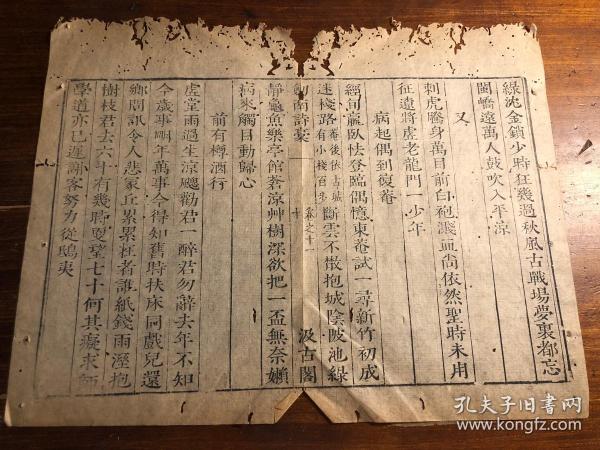 綠沈金鎖少時狂幾過秋風古戰場夢裏都忘
閩嶠遠萬人鼓吹入平涼
又
刺虎騰身萬目前白袍濺血尚依然聖時未用
征遼將虛老龍門一少年
病起偶到復菴
經旬羸臥怯登臨偶憶東菴試一尋新竹初成
迷棧路菴後依古城有小棧百步斷雲不散抱城陰陂池綠
劍南詩稾 卷之十一 十 汲古閣
靜龜魚樂亭館蒼涼艸樹深欲把一盃無奈嬾
病來觸目動歸心
前有樽酒行
虛堂雨過生涼飈勸君一醉君勿辭去年不知
今歲事明年萬事今得知舊時扶床同戲兒還
鄉閒訊令人悲冢丘累累枉者誰紙錢雨溼抱
樹枝君去六十有幾時更望七十何其癡求師
學道亦已遲謝客努力從鴟夷
孔夫子旧书网
www.kongfz.com